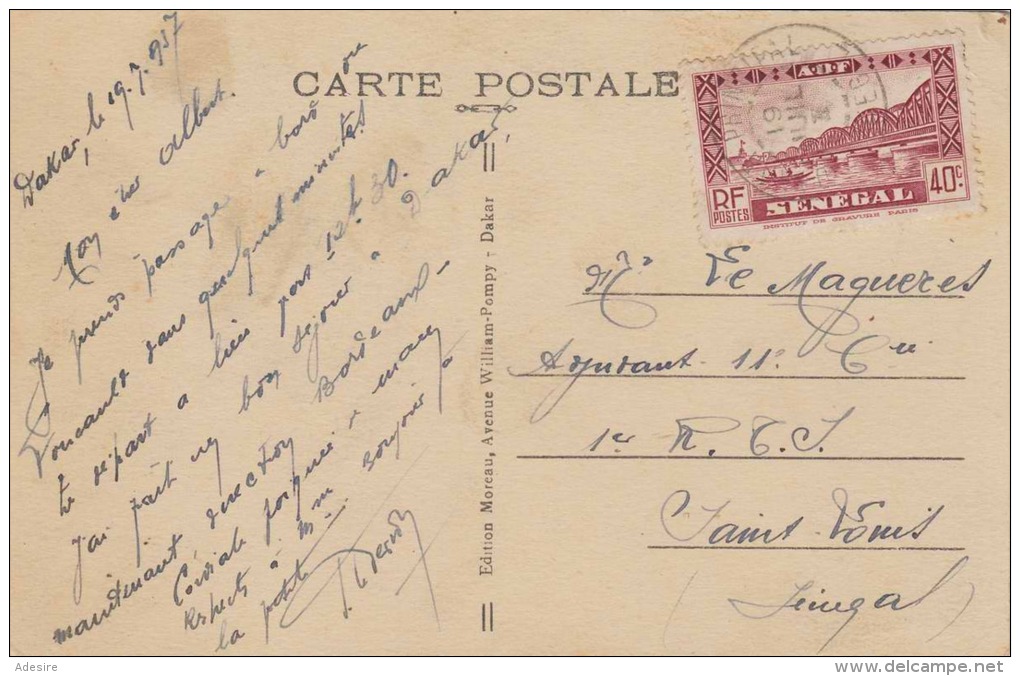 CARTE POSTALE
Dakar, le 19.7.937
Mon cher Albert.
Je prends passage à bord du
Foucault dans quelques minutes
Le départ a lieu pour 12 h 30.
J'ai fait un bon séjour à Dakar,
maintenant direction Bordeaux -
Cordiale poignée de main
Respects à Mme bonjour à
la petite
Edition Moreau, Avenue William-Pompy - Dakar
A.O.F
RF
POSTES
SENEGAL
40c.
INSTITUT DE GRAVURE PARIS
19 JUIL
Mr Le Magueres
Adjudant 11e Cie
1er R. T. S.
Saint Louis
(Sénégal)
Adesire
delcampe.net